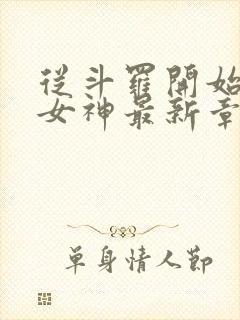 從斗羅開始
女神最新章
單身情人節